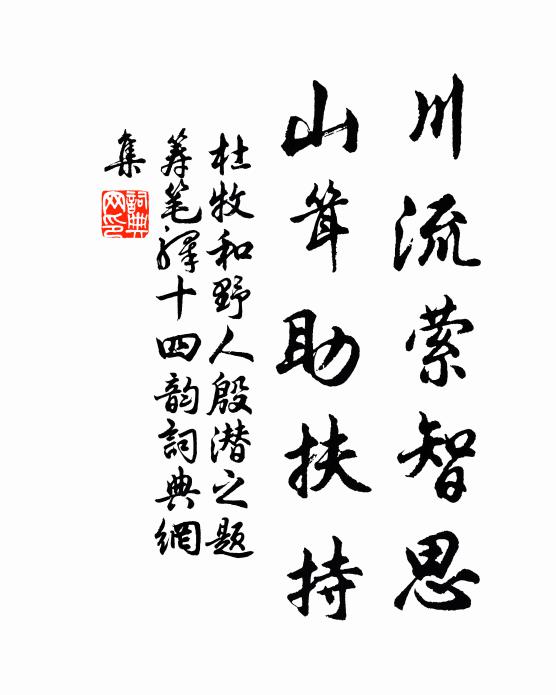 川流萦智思
山耸助扶持
杜牧和野人殷潜之题
筹笔驿十四韵詞典網
集
詞典
网印